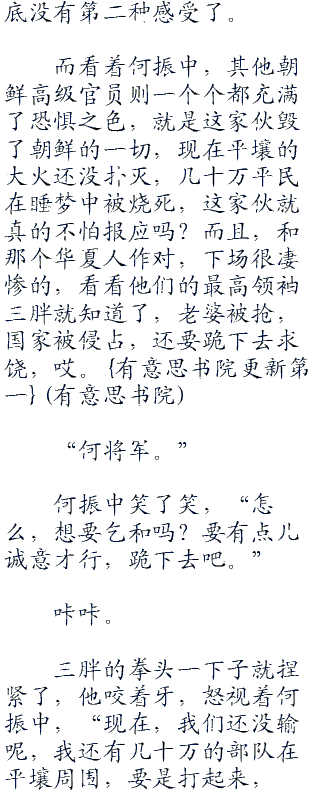 底没有第二种感受了。
而看着何振中，其他朝
鲜高级官员则一个个都充满
了恐惧之色，就是这家伙毁
了朝鲜的一切，现在平壤的
大火还没扑灭，几十万平民
在睡梦中被烧死，这家伙就
真的不怕报应吗？而且，和
那个华夏人作对，下场很凄
惨的，看看他们的最高领袖
三胖就知道了，老婆被抢，
国家被侵占，还要跪下去求
饶，哎。{有意思书院更新第
一}(有意思书院)
“何将军。”
何振中笑了笑，“怎
么，想要乞和吗？要有点儿
诚意才行，跪下去吧。”
咔咔。
三胖的拳头一下子就捏
紧了，他咬着牙，怒视着何
振中，“现在，我们还没输
呢，我还有几十万的部队在
平壤周围，要是打起来，